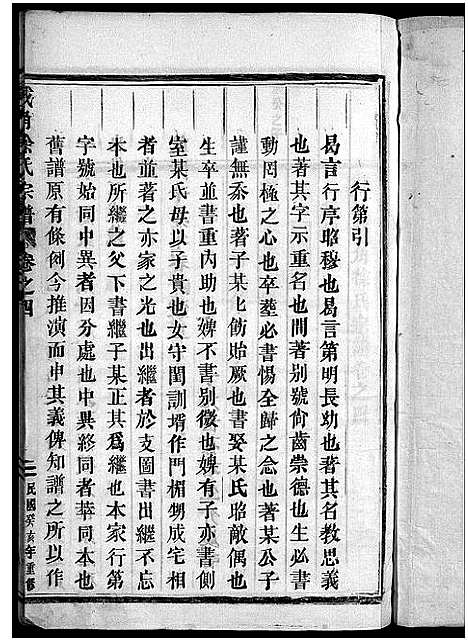 行第引
曷言行序昭穆也曷言第明長幼也著其名教思義
也著其字示重名也間著別號尙齒崇德也生必書
動罔極之心也卒塟必書惕全歸之念也著某公子
謹無忝也著子某匕飭貽厥也書娶某氏昭敵偶也
生卒並書重內助也婢不書别微也婢有子亦書側
室某氏母以子貴也女守閨訓壻作門楣甥成宅相
者並著之亦家之光也出繼者於支圖書出繼不忘
本也所繼之父下書繼子某正其爲繼也本家行第
字號始同中異者因分處也中異終同者萃同本也
舊譜原有條例今推演而申其義俾知譜之所以作
氏宗譜
卷之四
二
民國癸亥年重修